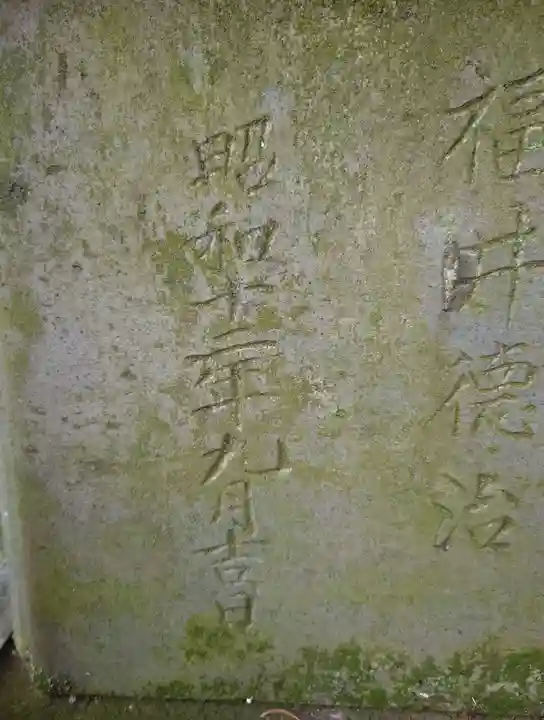 福井徳治
昭和十二年九月吉日